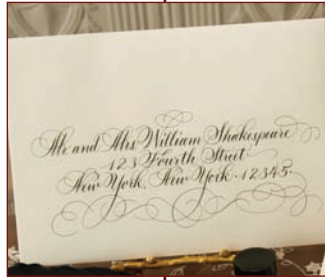 Mr. and Mrs. William Shakespeare
123 Fourth Street
New York, New York · 12345·